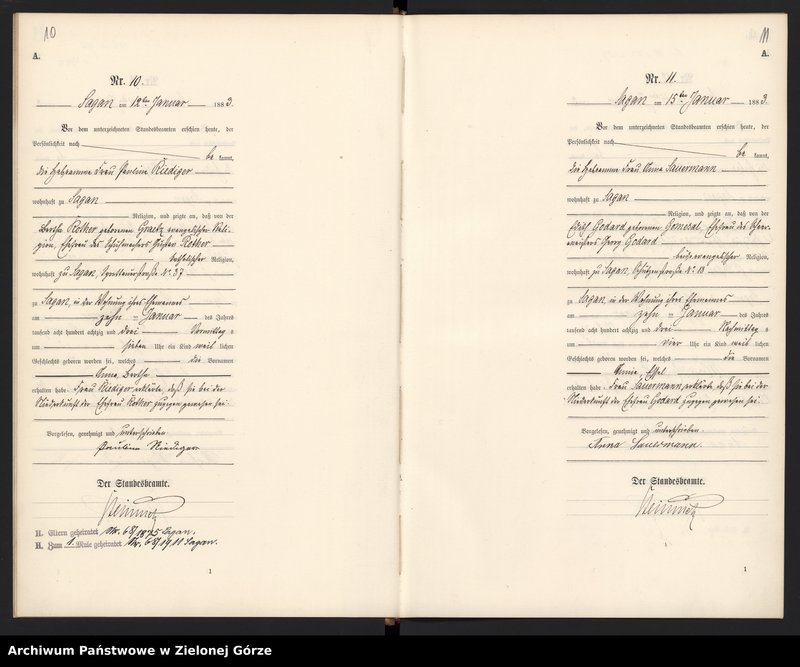 10
A.
Nr. 10.
Sagan am 12ten Januar 1883.
Vor dem unterzeichneten Standesbeamten erschien heute, der
Persönlichkeit nach
be kannt,
die Hebeamme Frau Pauline Riediger
wohnhaft zu Sagan
Religion, und zeigte an, daß von der
Bertha Rother geborenen evangelischer Reli-
gion, Ehefrau des Schuhmachers Gustav Rother
katholischer Religion,
wohnhaft zu Sagan, No 37
zu Sagan, in der Wohnung ihres Ehemannes
am zehn ten Januar des Jahres
tausend acht hundert achtzig und drei Vormittag s
um sieben Uhr ein Kind weib lichen
Geschlechts geboren worden sei, welches die Vornamen
Anna Bertha
erhalten habe. Frau Riediger erklärte, daß sie bei der
Niederkunft der Ehefrau Rother zugegen gewesen sei.
Vorgelesen, genehmigt und unterschrieben.
Pauline Riediger
Der Standesbeamte.
H. Eltern geheiratet Nr. Sagan.
H. Zum 1. Male geheiratet Nr. Sagan.
1
11
A.
Nr. 11.
Sagan am 15ten Januar 1883.
Vor dem unterzeichneten Standesbeamten erschien heute, der
Persönlichkeit nach
be kannt,
die Hebeamme Frau Anna Sauermann
wohnhaft zu Sagan
Religion, und zeigte an, daß von der
Godard geborenen Ehefrau des
Georg Godard
beide evangelischer Religion,
wohnhaft zu Sagan, No 13
zu Sagan, in der Wohnung ihres Ehemannes
am zehn ten Januar des Jahres
tausend acht hundert achtzig und drei Nachmittag s
um vier Uhr ein Kind weib lichen
Geschlechts geboren worden sei, welches die Vornamen
Annie
erhalten habe. Frau Sauermann erklärte, daß sie bei der
Niederkunft der Ehefrau Godard zugegen gewesen sei.
Vorgelesen, genehmigt und unterschrieben.
Anna Sauermann.
Der Standesbeamte.
1
Archiwum Państwowe w Zielonej Górze